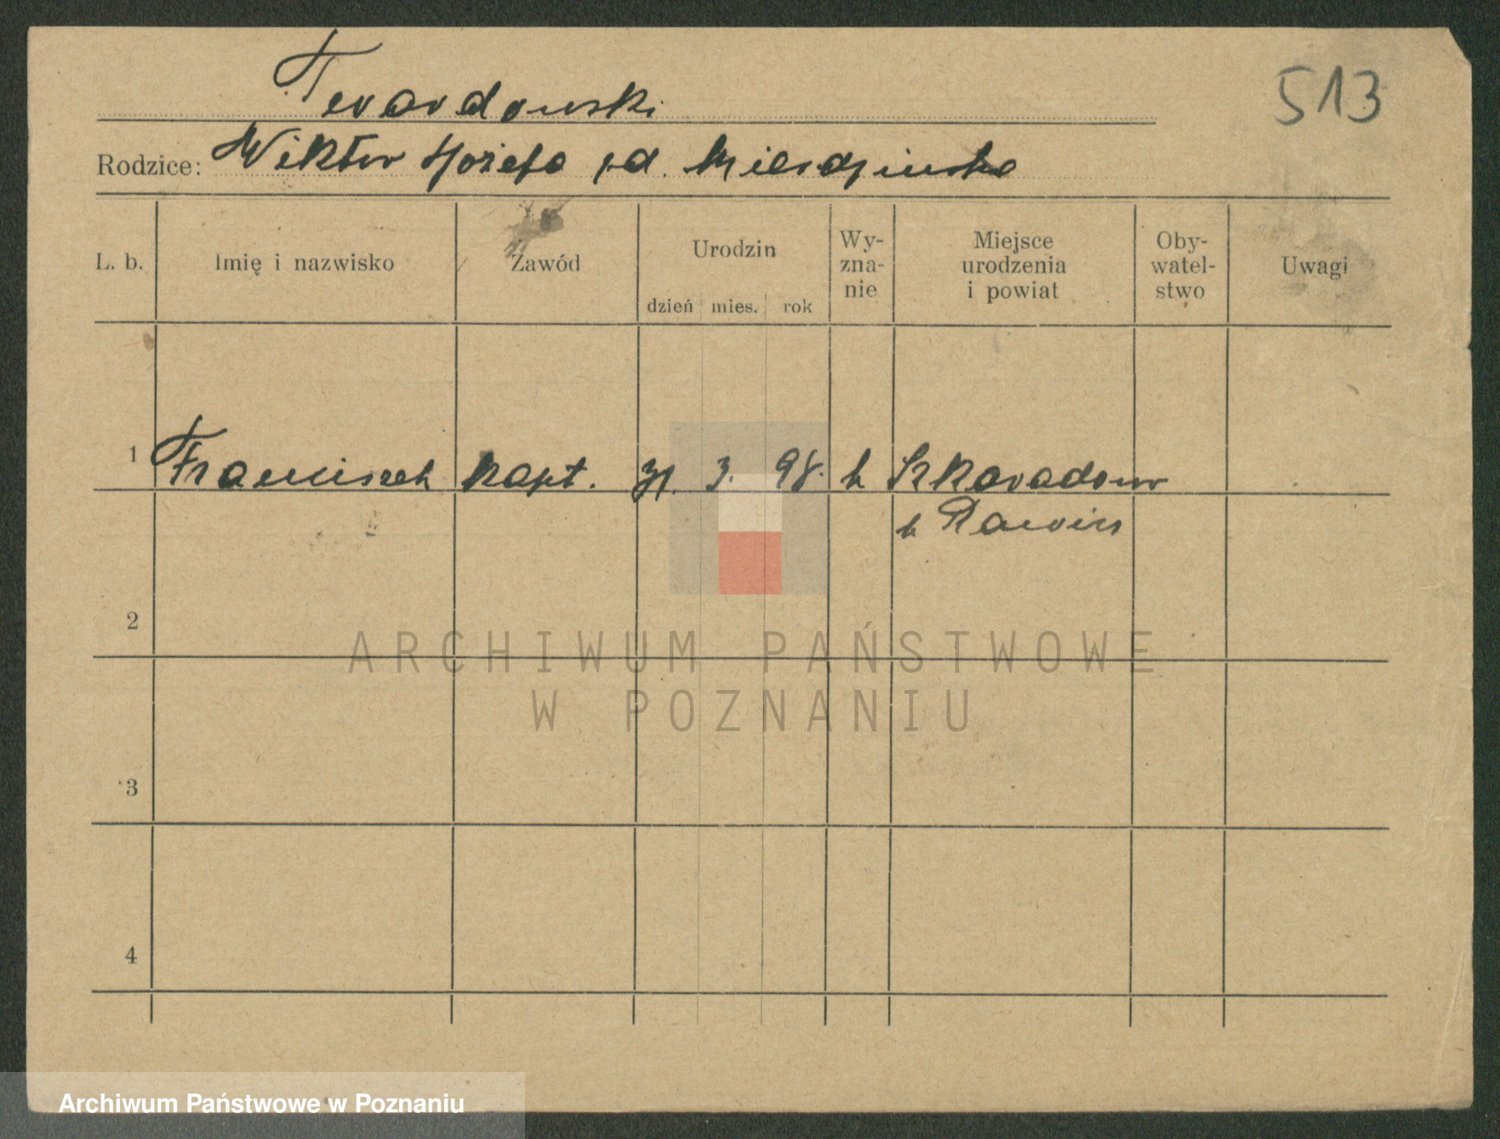 513
Twardowski
Rodzice: Wiktor Józefa z d. Mierdzińska
L. b. Imię i nazwisko Zawód Urodzin Wy-zna-nie Miejsce urodzenia i powiat Oby-watel-stwo Uwagi
dzień mies. rok
1 Franciszek kapt. 31. 3. 98. k Szkaradowo
k Rawicz
2
3
4
ARCHIWUM PAŃSTWOWE
W POZNANIU
Archiwum Państwowe w Poznaniu